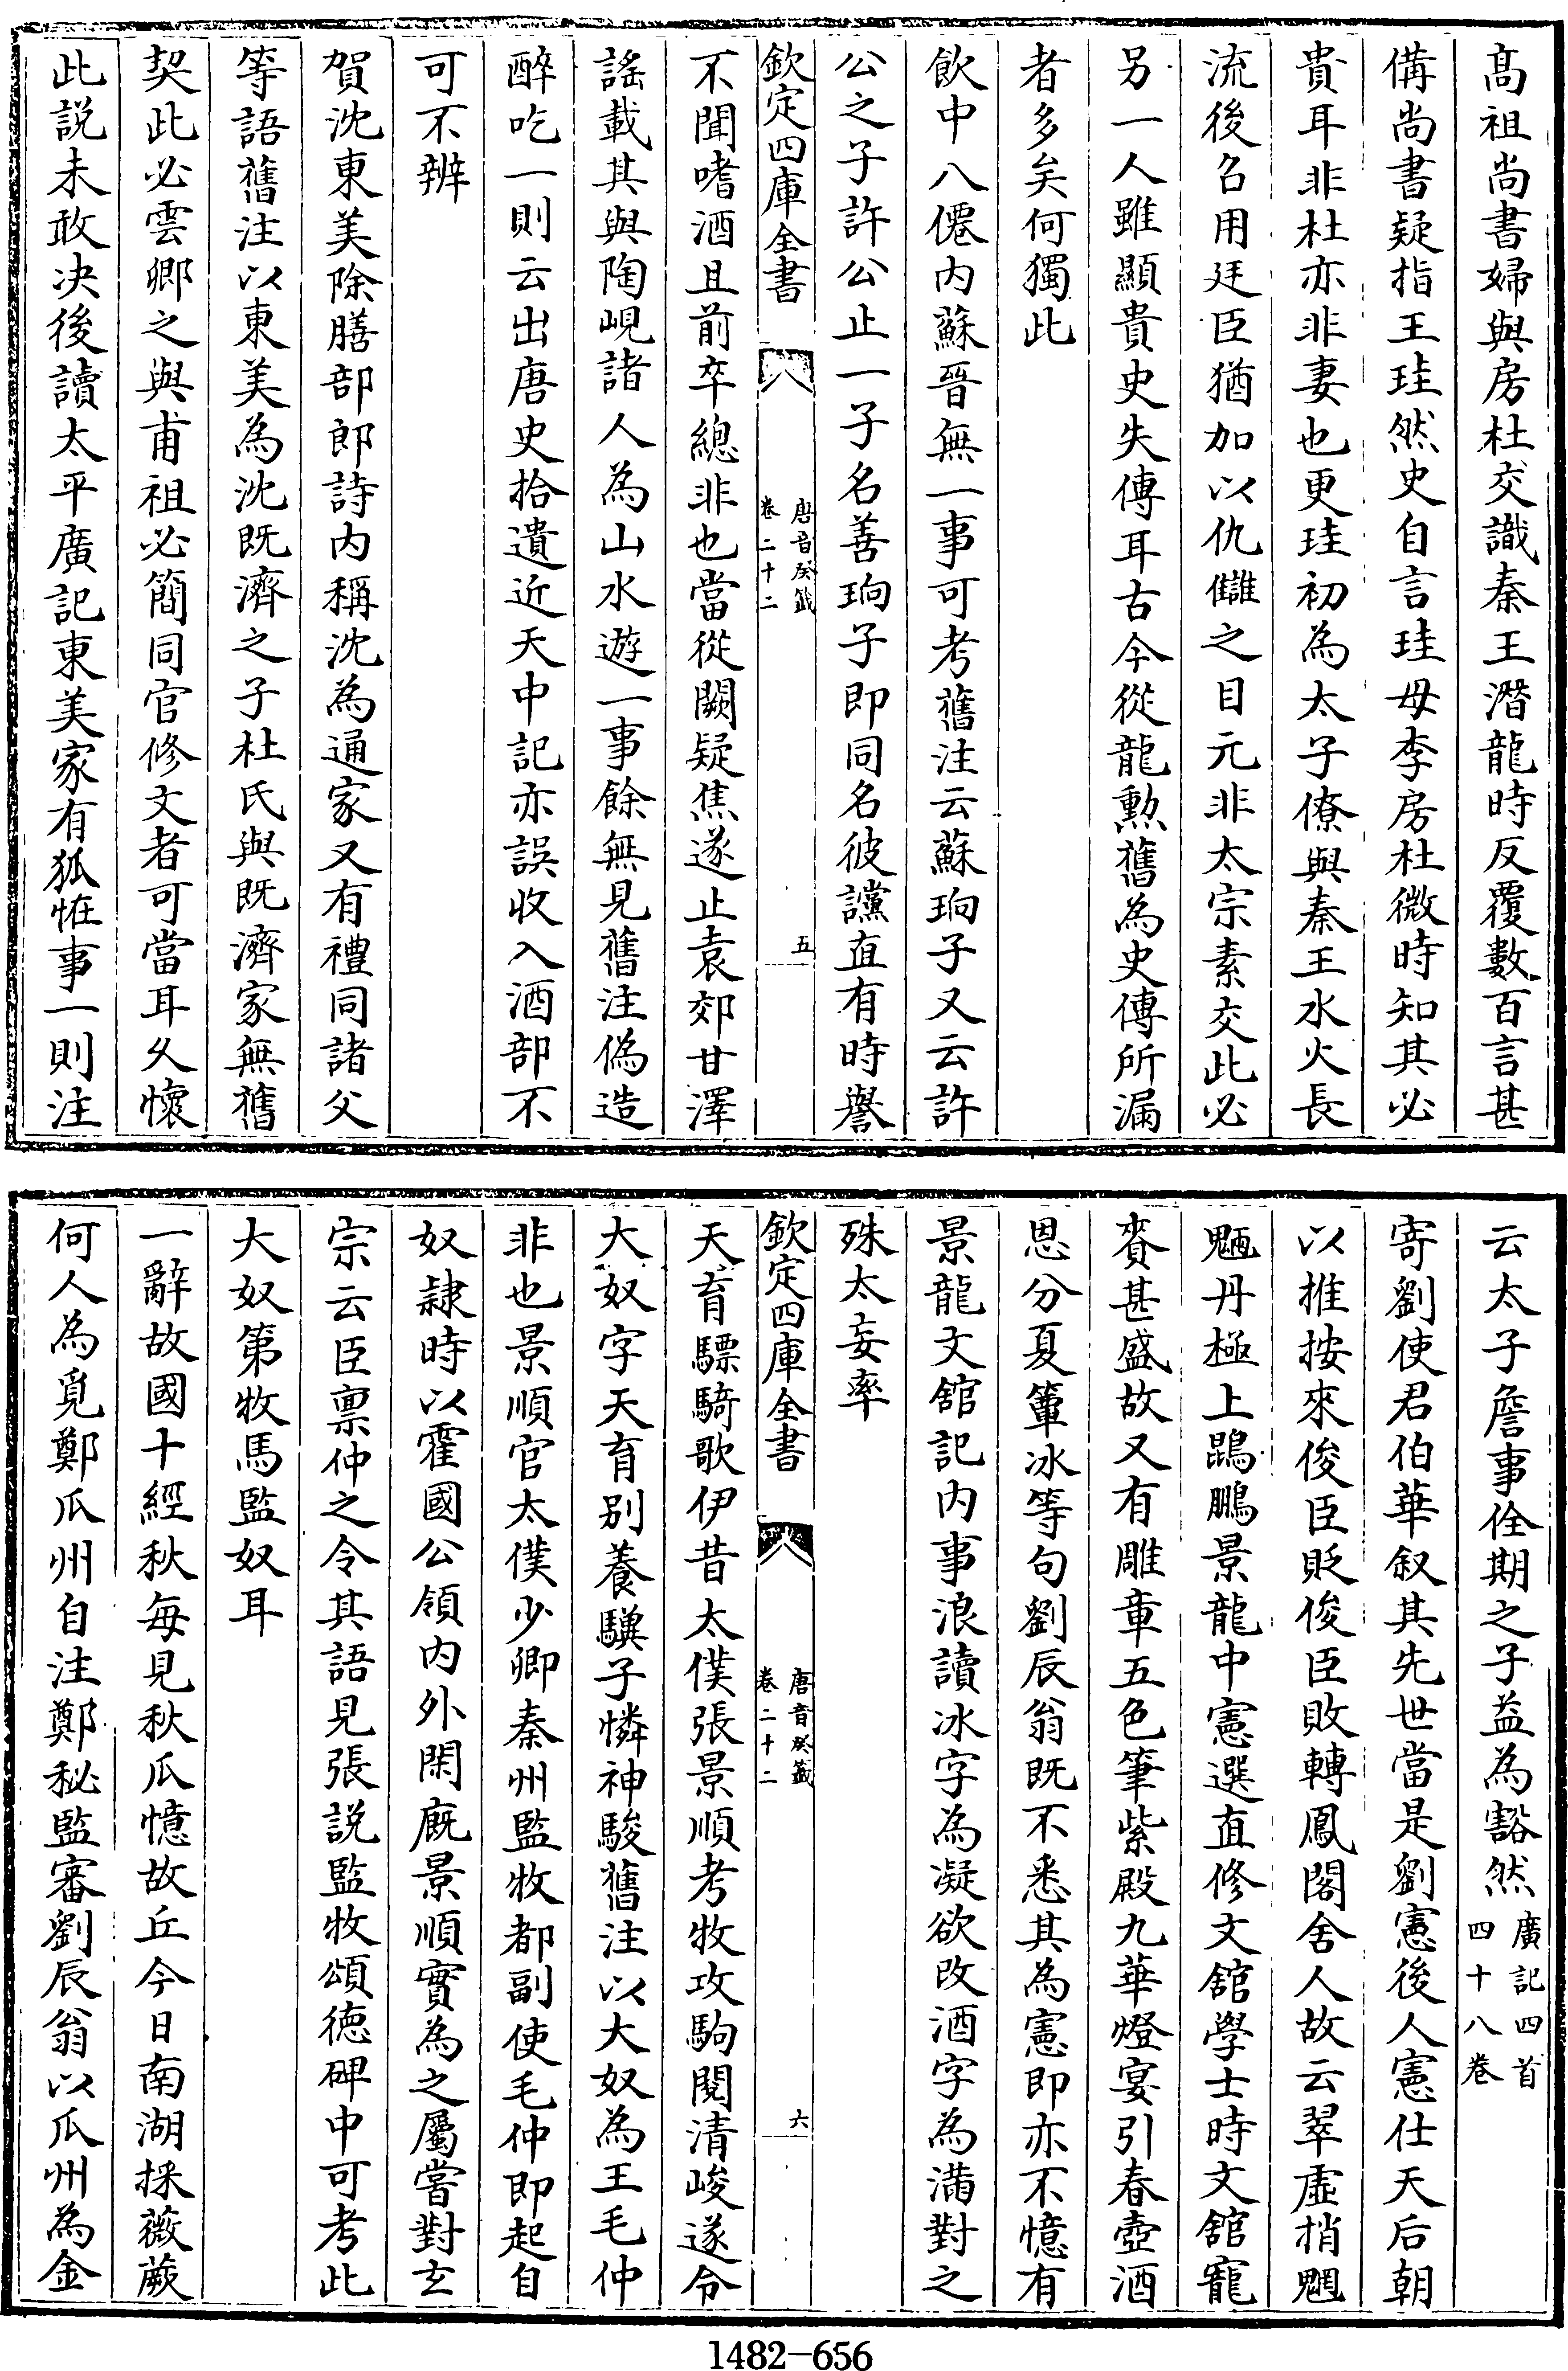 髙祖尚書婦與房杜交識秦王潛龍時反覆數百言甚
備尚書疑指王珪然史自言珪母李房杜微時知其必
貴耳非杜亦非妻也更珪初為太子僚與秦王水火長
流後召用廷臣猶加以仇讎之目元非太宗素交此必
另一人雖顯貴史失傳耳古今從龍勲舊為史傳所漏
者多矣何獨此
飲中八僊内蘇晉無一事可考舊注云蘇珦子又云許
公之子許公止一子名善珦子即同名彼讜直有時譽
欽定四庫全書
唐音癸籖
卷二十二
五
不聞嗜酒且前卒總非也當從闕疑焦遂止袁郊甘澤
謠載其與陶峴諸人為山水遊一事餘無見舊注偽造
醉吃一則云出唐史拾遺近天中記亦誤收入酒部不
可不辨
賀沈東美除膳部郎詩内稱沈為通家又有禮同諸父
等語舊注以東美為沈既濟之子杜氏與既濟家無舊
契此必雲卿之與甫祖必簡同官修文者可當耳久懷
此説未敢决後讀太平廣記東美家有狐恠事一則注
云太子詹事佺期之子益為豁然廣記四首
四十八卷
寄劉使君伯華叙其先世當是劉憲後人憲仕天后朝
以推按來俊臣貶俊臣敗轉鳳閣舍人故云翠虛捎魍
魎丹極上鵾鵬景龍中憲選直修文舘學士時文舘寵
賚甚盛故又有雕章五色筆紫殿九華燈宴引春壺酒
恩分夏簟冰等句劉辰翁既不悉其為憲即亦不憶有
景龍文舘記内事浪讀冰字為凝欲改酒字為滿對之
殊太妄率
欽定四庫全書
唐音癸籖
卷二十二
六
天育驃騎歌伊昔太僕張景順考牧攻駒閱清峻遂令
大奴字天育别養驥子憐神駿舊注以大奴為王毛仲
非也景順官太僕少卿秦州監牧都副使毛仲即起自
奴隷時以霍國公領内外閑廐景順實為之屬嘗對玄
宗云臣禀仲之令其語見張説監牧頌徳碑中可考此
大奴第牧馬監奴耳
一辭故國十經秋毎見秋瓜憶故丘今日南湖採薇蕨
何人為覓鄭瓜州自注鄭秘監審劉辰翁以瓜州為金
1482-656